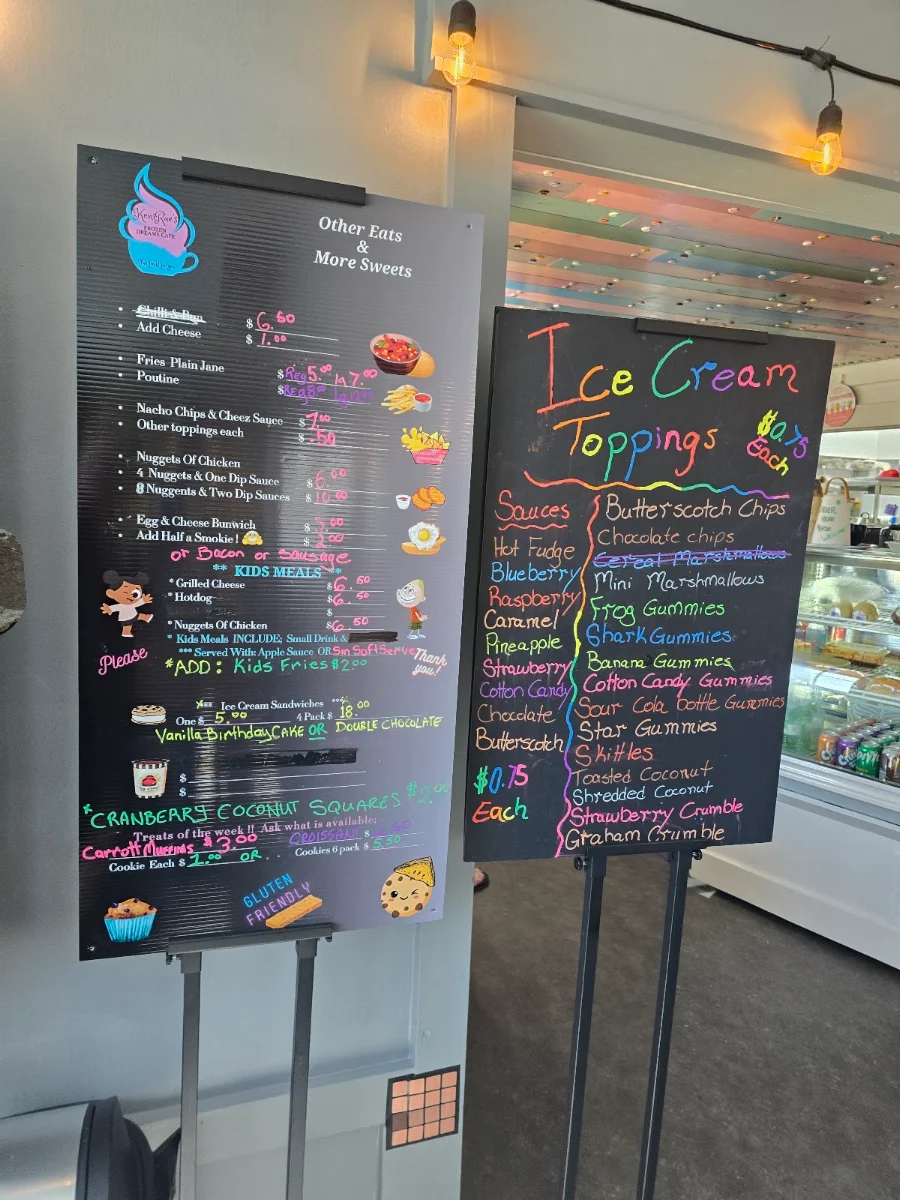 KentRae's
FROZEN
DREAMS CAFE
Other Eats
&
More Sweets
Chilli & Bun $ 6.50
Add Cheese $ 1.00
Fries Plain Jane $ Reg 5.00 lg 7.00
Poutine $ Reg 8.00
Nacho Chips & Cheez Sauce $ 7.00
Other toppings each $ .50
Nuggets Of Chicken
4 Nuggets & One Dip Sauce $ 6.00
8 Nuggents & Two Dip Sauces $ 10.00
Egg & Cheese Bunwich $
Add Half a Smokie ! $ 2.00
or Bacon or Sausage
** KIDS MEALS **
* Grilled Cheese $ 6.50
* Hotdog $ 6.50
$
* Nuggets Of Chicken $ 6.50
* Kids Meals INCLUDE; Small Drink &
*** Served With: Apple Sauce OR Sm Soft Serve
Please
*ADD: Kids Fries $2.00
Thank you!
Ice Cream Sandwiches
One $ 5.00 4 Pack $ 18.00
Vanilla Birthday CAKE OR DOUBLE CHOCOLATE
$
$
*CRANBERRY COCONUT SQUARES $2.00
Treats of the week !! Ask what is available:
Carrott Muffins $ 3.00 CROISSANT $
Cookie Each $ 1.00 OR Cookies 6 pack $ 5.50
GLUTEN
FRIENDLY
Ice Cream
Toppings
$0.75
Each
Sauces
Hot Fudge
Blueberry
Raspberry
Caramel
Pineapple
Strawberry
Cotton Candy
Chocolate
Butterscotch
$0.75
Each
Butterscotch Chips
Chocolate chips
Cereal Marshmallows
Mini Marshmallows
Frog Gummies
Shark Gummies
Banana Gummies
Cotton Candy Gummies
Sour Cola bottle Gummies
Star Gummies
Skittles
Toasted Coconut
Shredded Coconut
Strawberry Crumble
Graham Crumble